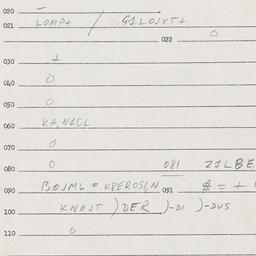 020 –
021 LOMPA / GALOJYT+
022 0
030 +
040 0
050 0
060 KA, NACL
070 0
080 0 081 ZILBE
090 BOJML = KPEROSIN 091 # = +
100 KNOJT ) DER ) -DI ) -DUS
110 0